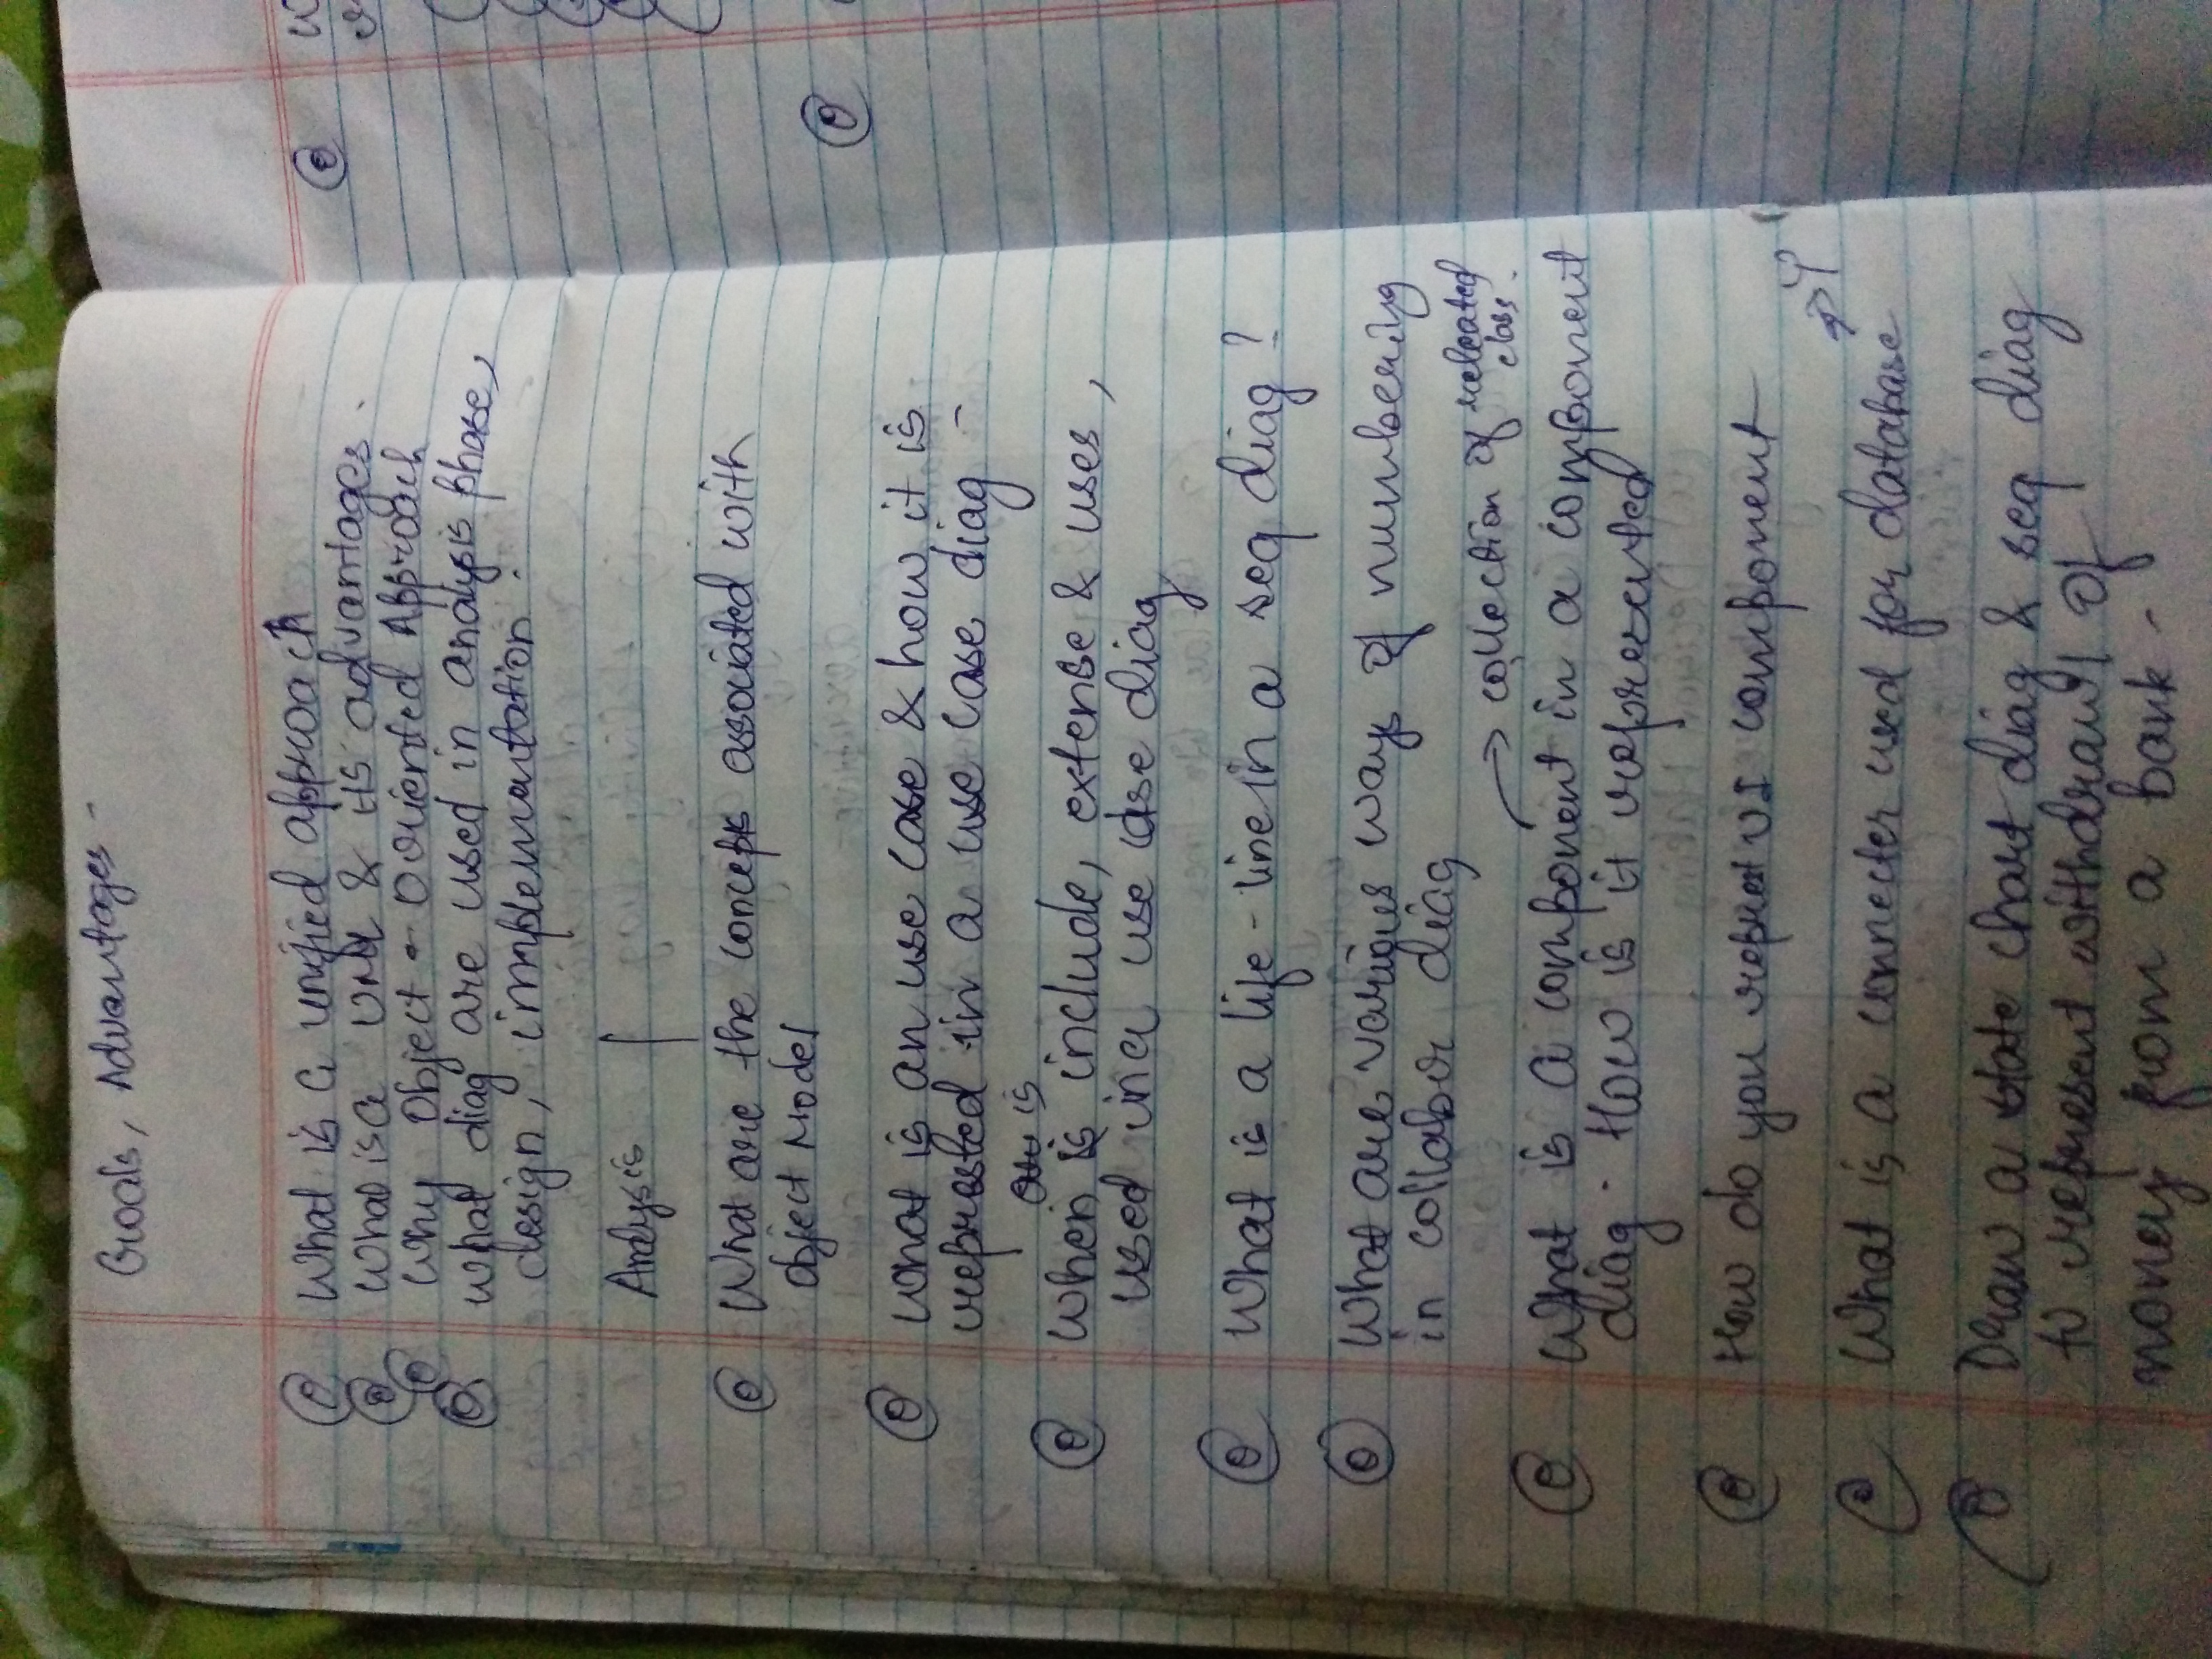 Goals, Advantages -
Q What is a unified approach
Q What is a UML & its advantages.
Q Why Object - Oriented Approach
Q What diag are used in analysis phase,
design, implementation.
Analysis
Q What are the concepts associated with
object Model
Q What is an use case & how it is
represted in a use case diag -
is
Q When is include, extense & uses,
used in a use case diag
Q What is a life-line in a seq diag?
Q What are various ways of numbering
in collabor diag
→ collection of releated
class.
Q What is a component in a component
diag. How is it represented
Q How do you represt UI component
Q What is a connecter used for database
Q Draw a state chart diag & seq diag
to represent withdrawl of
money from a bank -
W
Q
Q